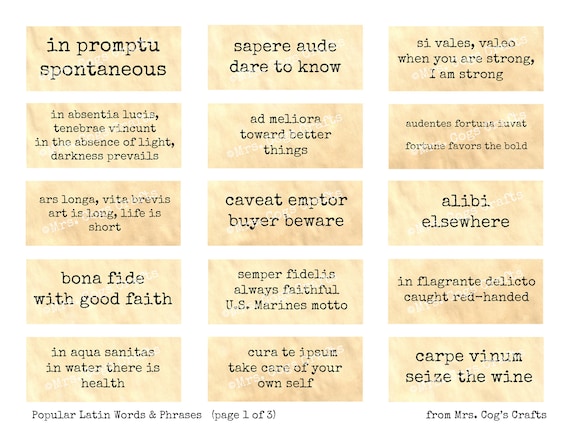 in promptu
spontaneous
sapere aude
dare to know
si vales, valeo
when you are strong,
I am strong
in absentia lucis,
tenebrae vincunt
in the absence of light,
darkness prevails
ad meliora
toward better
things
audentes fortuna iuvat
fortune favors the bold
ars longa, vita brevis
art is long, life is
short
caveat emptor
buyer beware
alibi
elsewhere
bona fide
with good faith
semper fidelis
always faithful
U.S. Marines motto
in flagrante delicto
caught red-handed
in aqua sanitas
in water there is
health
cura te ipsum
take care of your
own self
carpe vinum
seize the wine
Popular Latin Words & Phrases (page 1 of 3)
from Mrs. Cog's Crafts